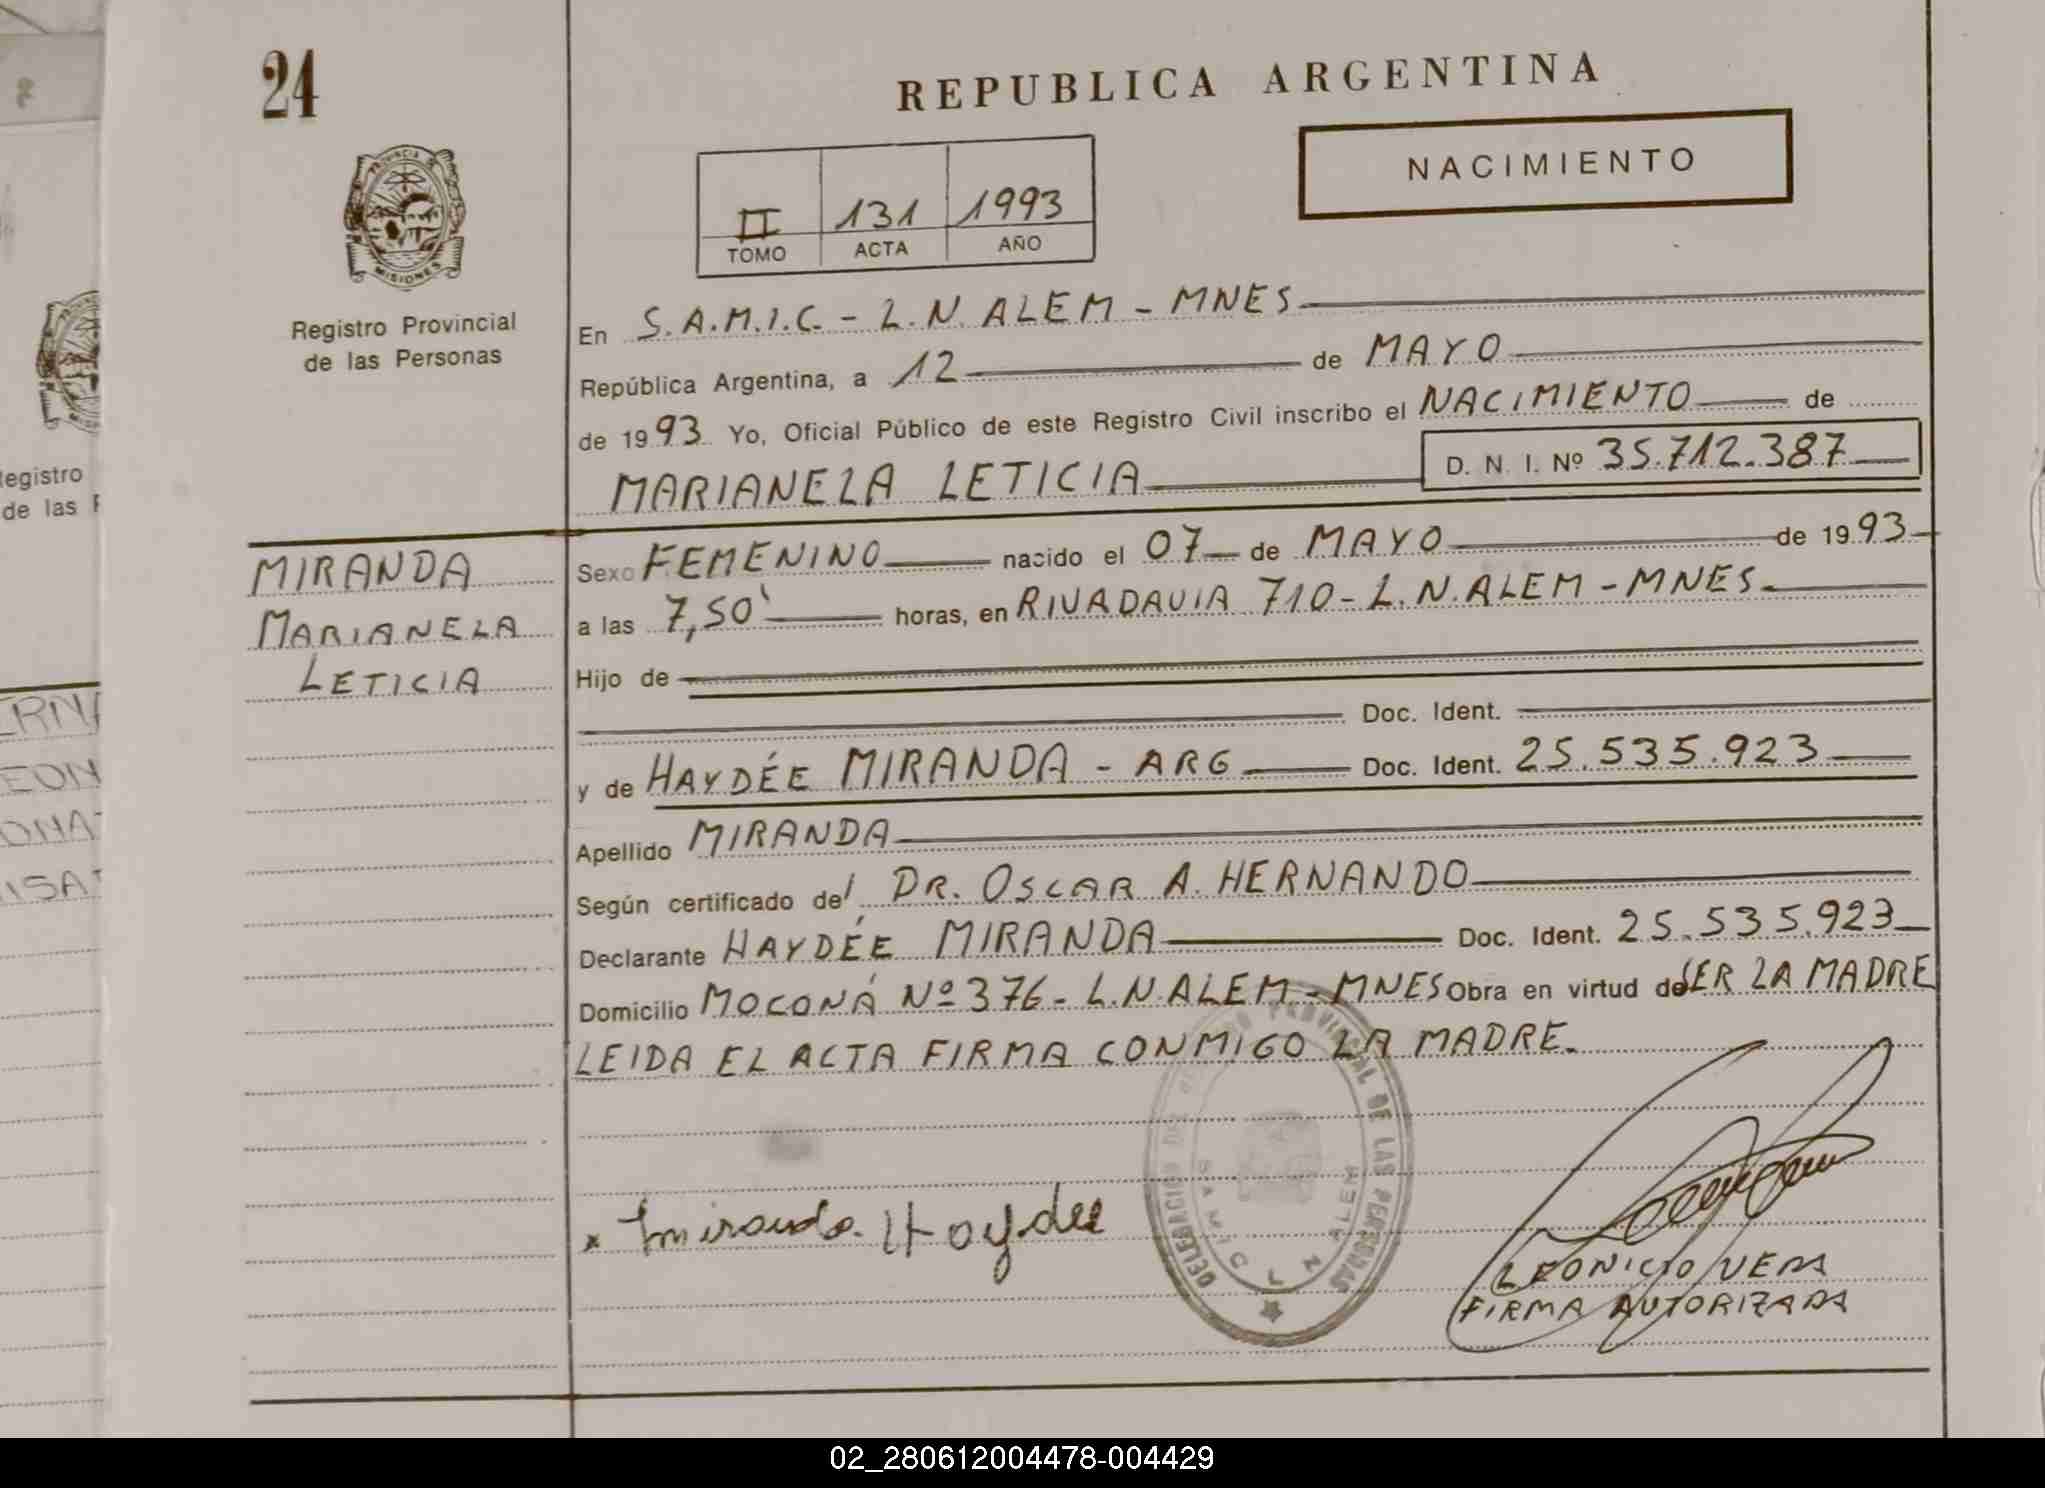 24
REPUBLICA ARGENTINA
NACIMIENTO
PROVINCIA DE
MISIONES
Registro Provincial
de las Personas
II 131 1993
TOMO ACTA AÑO
En S.A.M.I.C. - L.N. ALEM - MNES
República Argentina, a 12 de MAYO
de 1993 Yo, Oficial Público de este Registro Civil inscribo el NACIMIENTO de
MARIANELA LETICIA D. N. I. Nº 35.712.387
MIRANDA
MARIANELA
LETICIA
Sexo FEMENINO nacido el 07 de MAYO de 1993
a las 7,50' horas, en RIVADAVIA 710 - L.N. ALEM - MNES
Hijo de
Doc. Ident.
y de HAYDÉE MIRANDA - ARG Doc. Ident. 25.535.923
Apellido MIRANDA
Según certificado del DR. OSCAR A. HERNANDO
Declarante HAYDÉE MIRANDA Doc. Ident. 25.535.923
Domicilio MOCONÁ Nº 376 - L.N. ALEM - MNES Obra en virtud de SER LA MADRE
LEIDA EL ACTA FIRMA CONMIGO LA MADRE.
x Miranda Haydee
DELEGACION DEL PROVINCIAL DE LAS PERSONAS
L N ALEM
LEONICIO VERA
FIRMA AUTORIZADA
egistro
de las
ERNA
EON
ONA
ISA
02_280612004478-004429